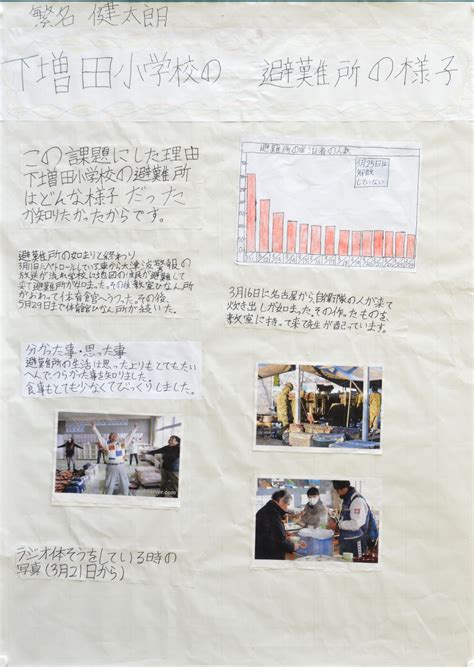 繁名 健太朗
下増田小学校の 避難所の様子
この課題にした理由
下増田小学校の避難所
はどんな様子だった
か知りたかったからです。
避難所の始まりと終わり
3月11日パトロールしている車から大津波警報の
放送が流れ学校には地区の住民が避難して
来て避難所が始まった。その後教室ひなん所
がおわって体育館へうつった。その後、
5月29日まで体育館ひなん所が続いた。
避難所の宿泊者の人数
3月25日は
調査
していない
3月16日に名古屋から自衛隊の人が来て
炊き出しが始まった。その作ったものを
教室に持って来て先生が配っています。
分かった事・思った事
避難所の生活は思ったよりもとてもたい
へんでつらかった事も知りました。
食事もとても少なくてびっくりしました。
ラジオ体そうをしている時の
写真(3月21日から)